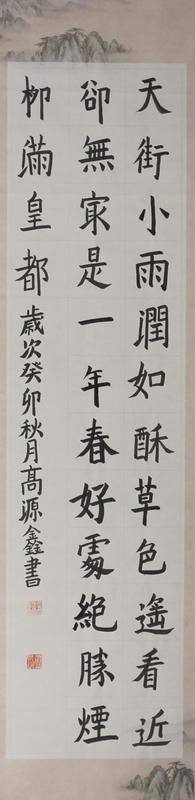 天街小雨潤如酥草色遥看近
卻無㝡是一年春好處絕勝煙
柳滿皇都歲次癸卯秋月高源鑫書